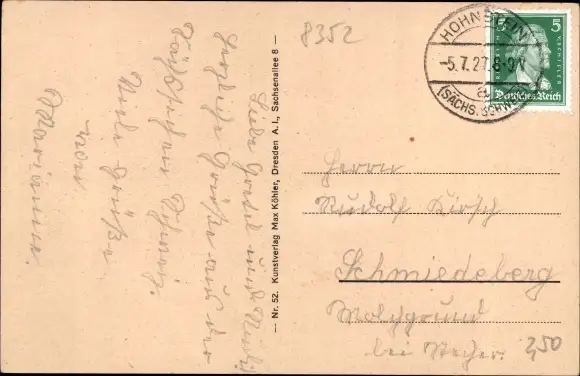 8352
Liebe Gretel und Rudi!
Herzliche Grüße aus der
Sächsischen Schweiz.
Viele Grüße
von
Marianne.
— Nr. 52. Kunstverlag Max Köhler, Dresden A. I., Sachsenallee 8 —
HOHNSTEIN
-5.7.27.8-9V
a
(SÄCHS. SCHWEIZ)
5 5
FRIEDRICH V. SCHILLER
Deutsches Reich
Herrn
Rudolf Kirsch
Schmiedeberg
bei
2,50